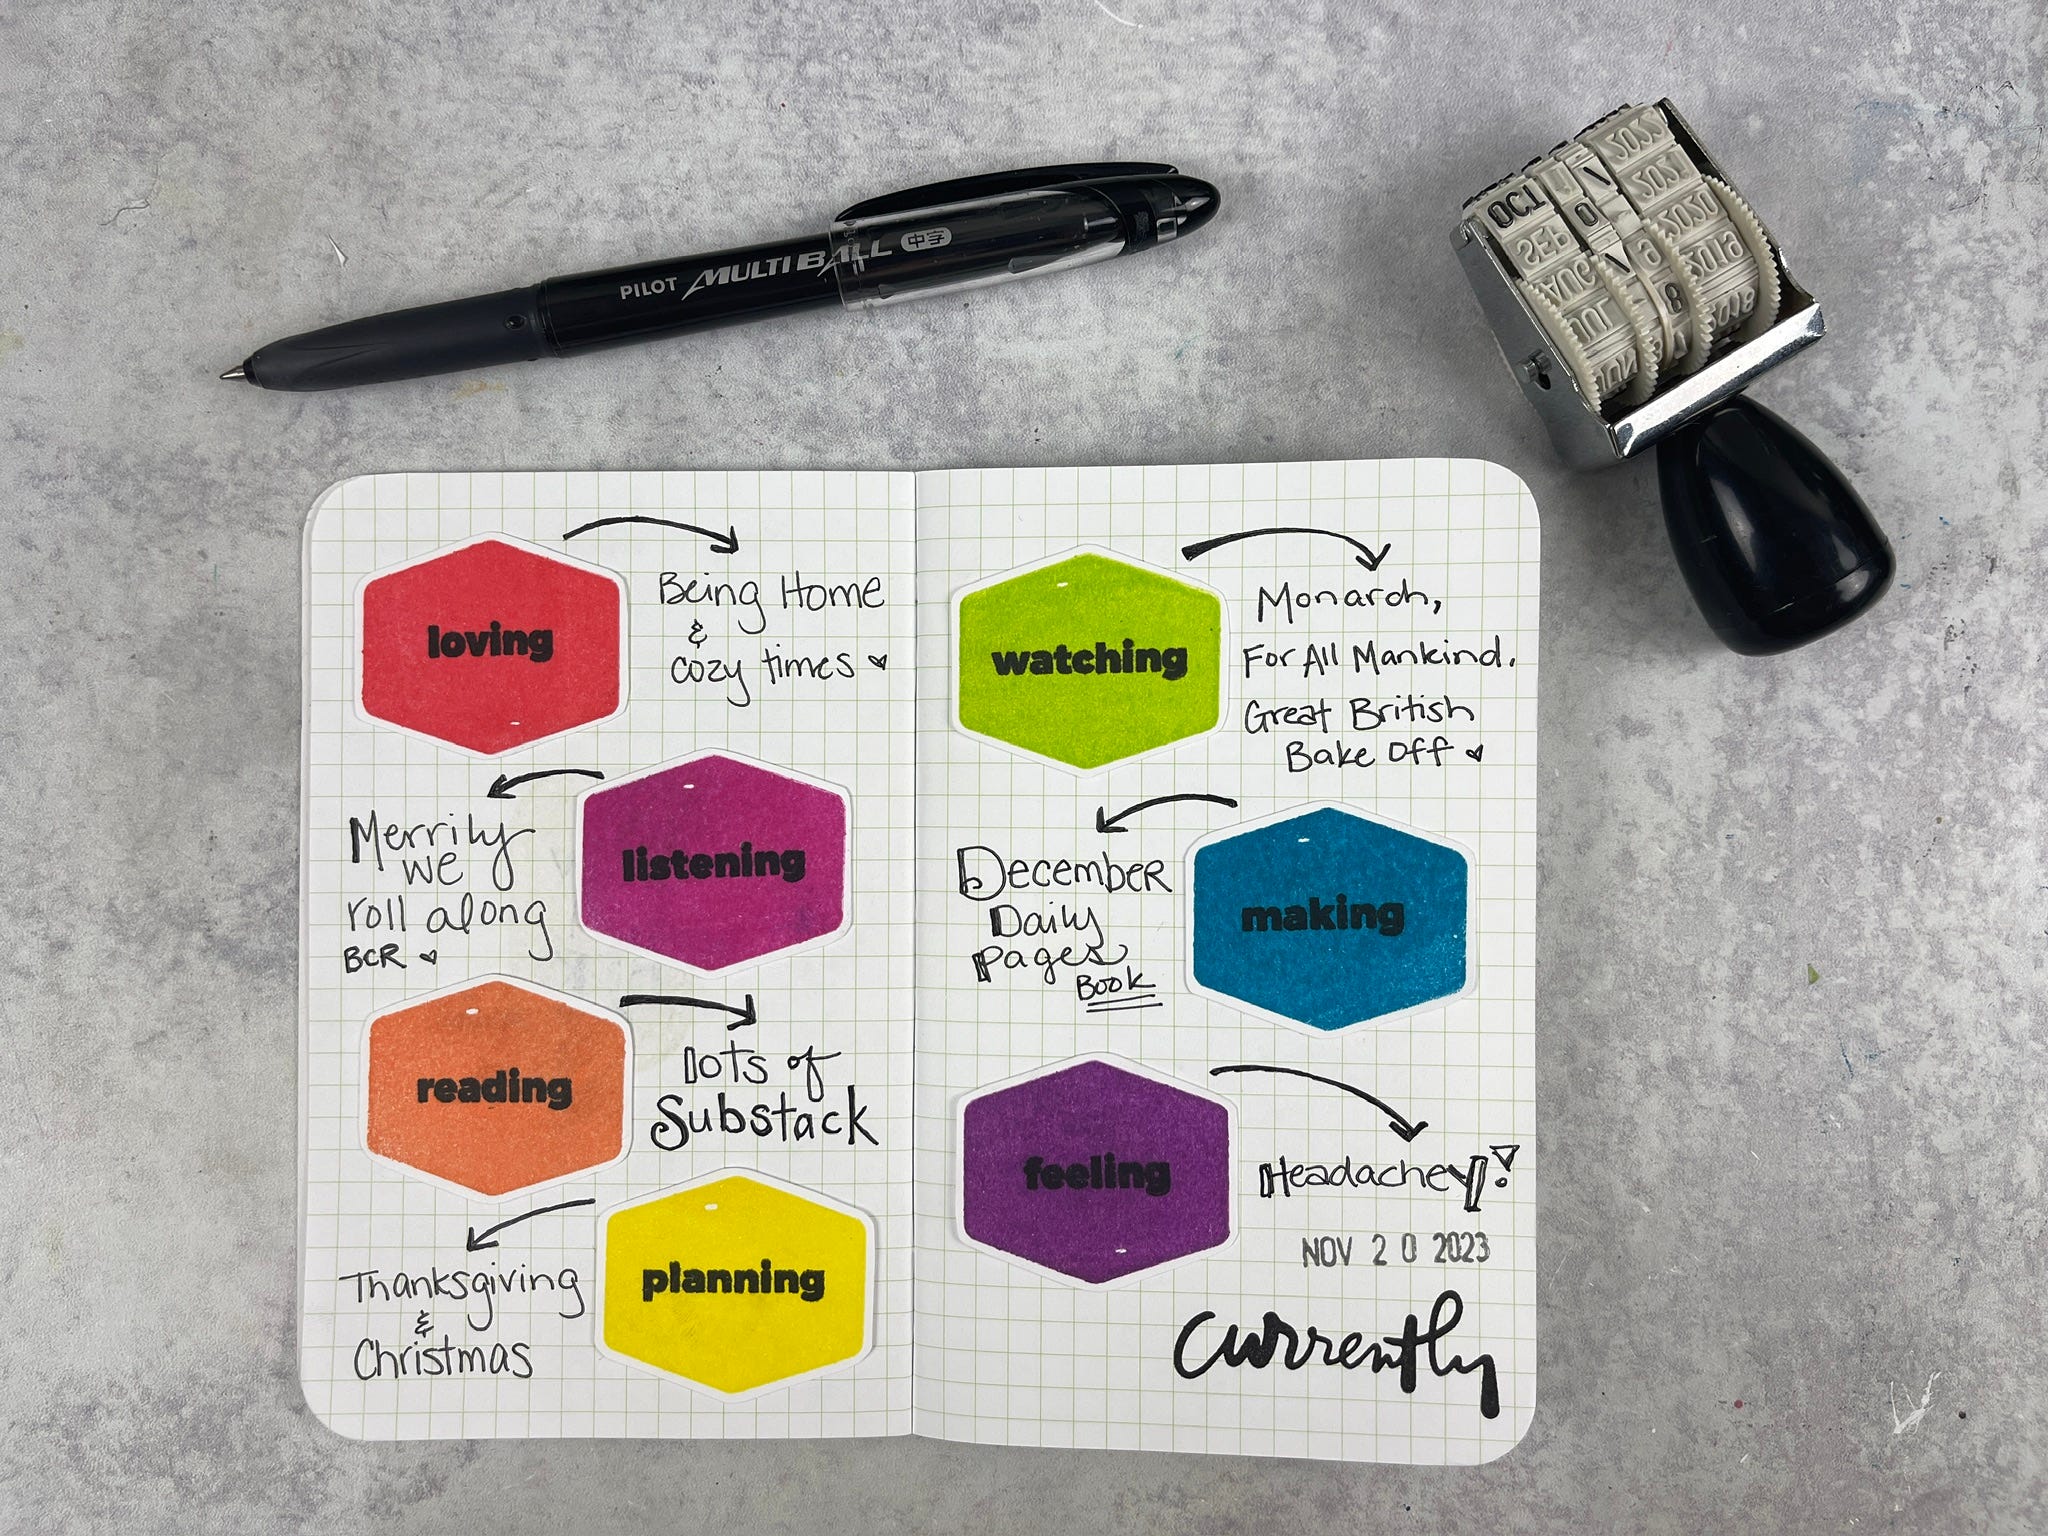 PILOT MULTI BALL 中字
OCT
SEP
AUG
JUL
JUN
0
9
8
2022
2021
2020
2019
2018
loving
Being Home
&
cozy times
listening
Merrily
we
roll along
BCR
reading
lots of
Substack
planning
Thanksgiving
&
Christmas
watching
Monarch,
For All Mankind.
Great British
Bake Off
making
December
Daily
pages
Book
feeling
Headachey!
NOV 20 2023
currently